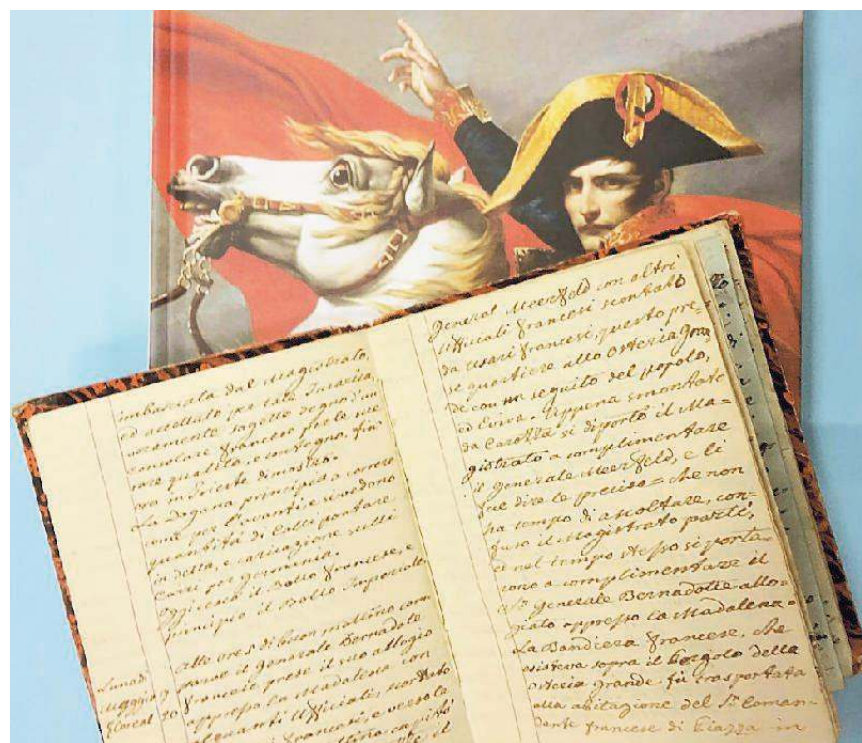 imbasciata dal Magistrato,
ed accettato per tale Incarico,
veramente saggetto degno d'un
consolare francese per le sue
rare qualità, e contegno, fin'
ora in Trieste dimostro.
La Dogana principia a correre
come per l'avanti, e si vedono
quantità di Colli portare,
in detta, e caricazione sulli
Carri per Germania.
Oggi cessò il Bollo francese, e
principiò il Bollo Imperiale.
Lunedì alle ore 5 di buon mattino com-
Maggio parve il Generale Bernadotte
Floreal 20 francese prese il suo allogio
appresso la Madalena con
alquanti Ufficiali, scortato
francesi, e verso le
mattino capitò
il
General Meerfeld con altri
Ufficiali francesi scortato
da Usari francesi, questo pre-
se quartiere allo Osteria Gran-
de con un seguito del Popolo,
ed Evive. Appena smontato
da Carozza si diportò il Ma-
gistrato a complimentare
il Generale Meerfeld, e li
fue dire le precise = che non
ha tempo di ascoltare, con-
fuso il Magistrato partì,
et nel tempo stesso si porta-
rono a complimentare il
Generale Bernadotte allo-
giato appresso la Madalena =
La Bandiera francese, che
esisteva sopra il Pergolo della
osteria grande, fù trasportata
alla abitazione del Sr. Coman-
dante francese di Piazza in